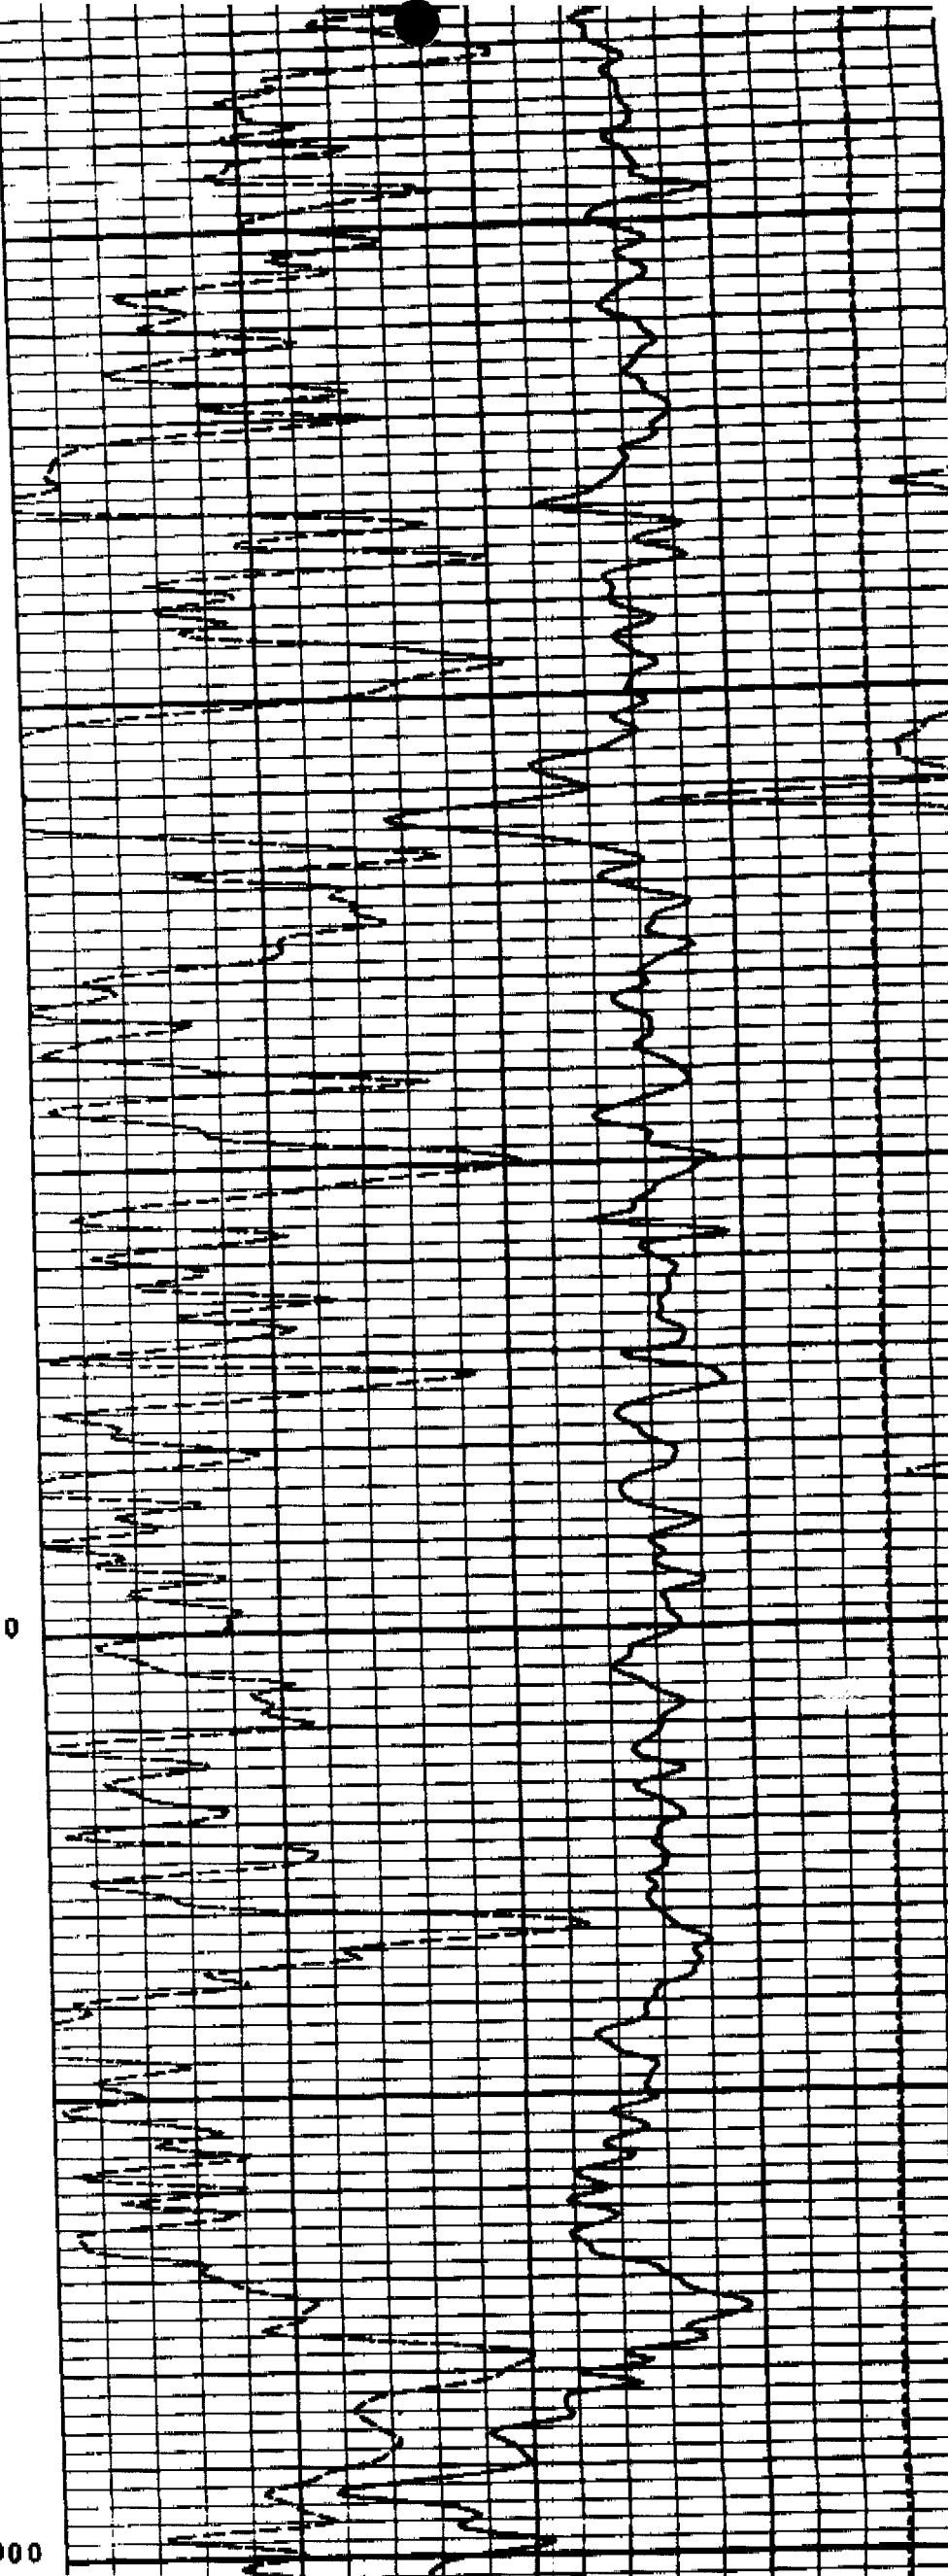 0
000